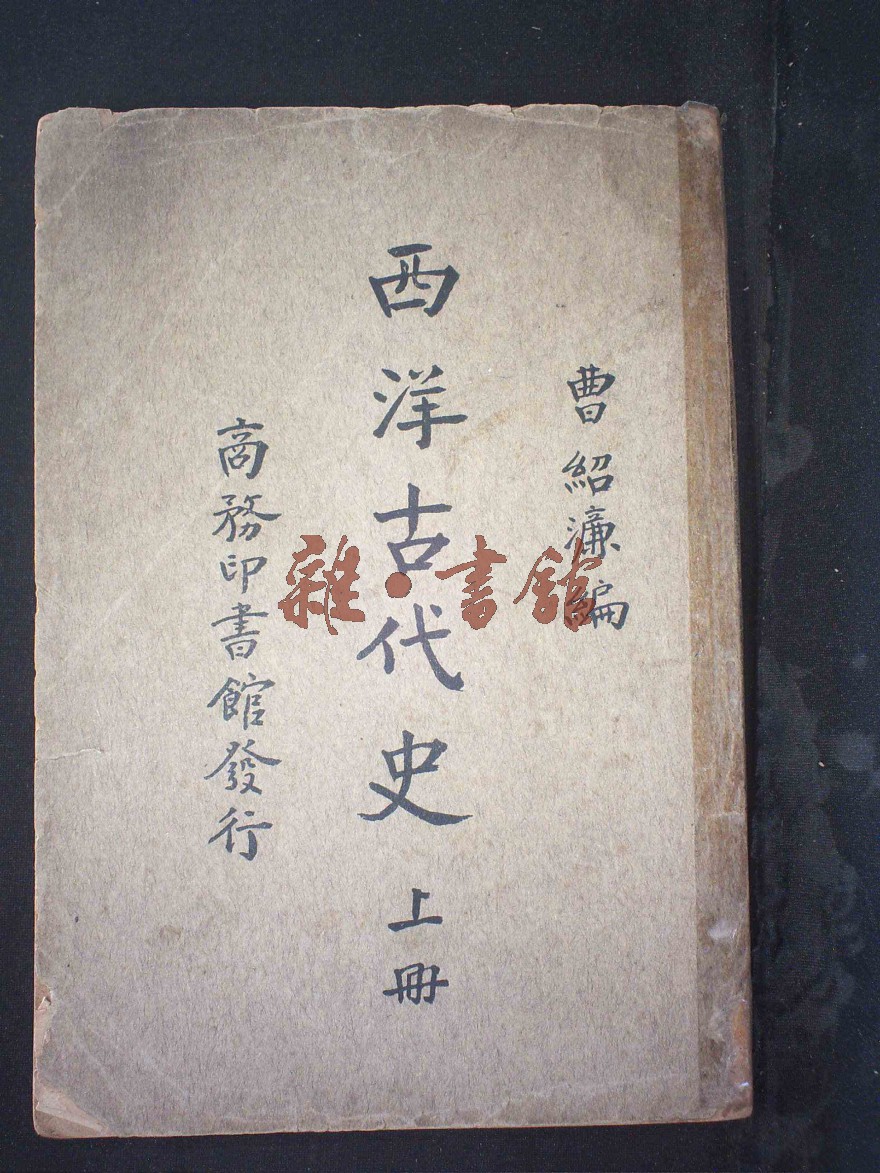 曹紹濂編
西洋古代史 上冊
商務印書館發行
雜·書館